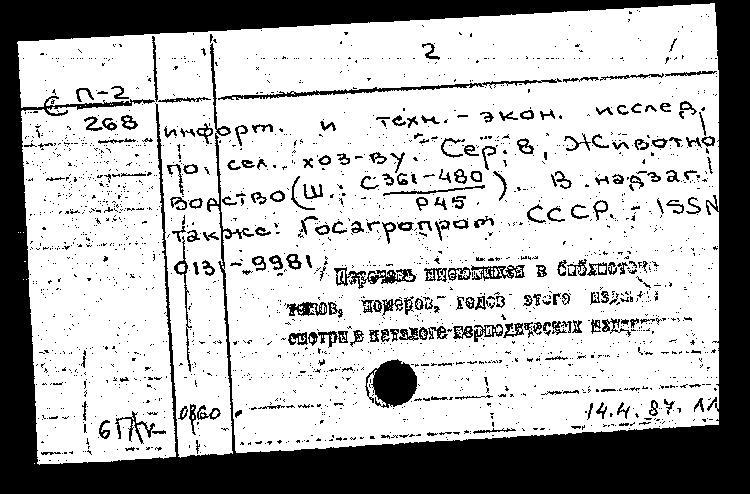 2
С П-2
268
информ. и техн.-экон. исслед.
по сел. хоз-ву. Сер. 8, Животно
водство (Ш.: С361-480
Р45). В надзаг.
также: Госагропром СССР. - ISSN
0131-9981
Перечень имеющихся в библиотеке
томов, номеров, годов этого издания
смотри в каталоге периодических издан
6 0860
14.4.87.